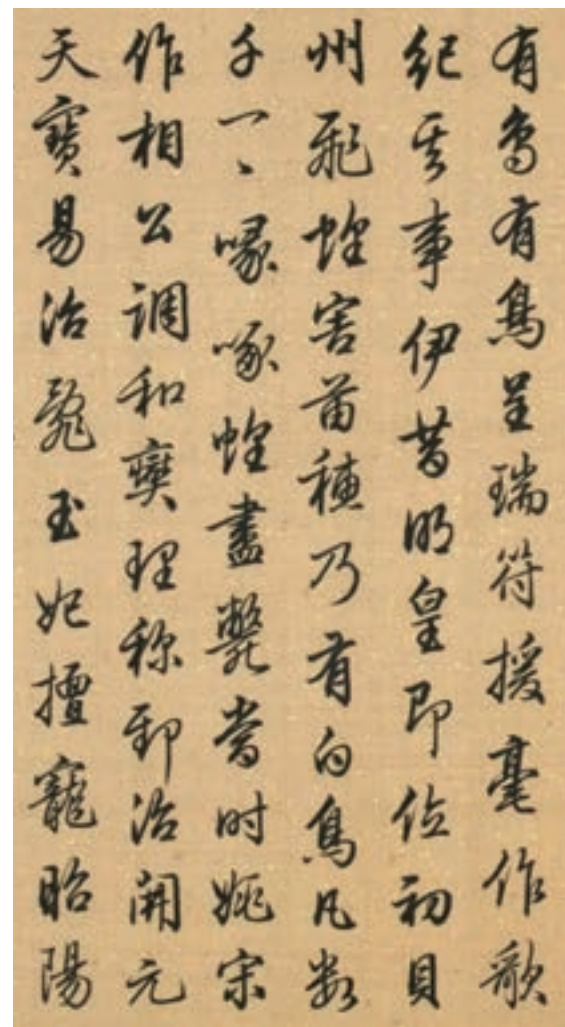 有鸟有鳥呈瑞符援毫作歌
纪其事伊昔明皇即位初貝
州飛蝗害苗穗乃有白鳥凡数
千一一喙啄蝗盡斃當时姚宋
作相公調和爕理称郅治開元
天寶易治亂玉妃擅寵昭陽